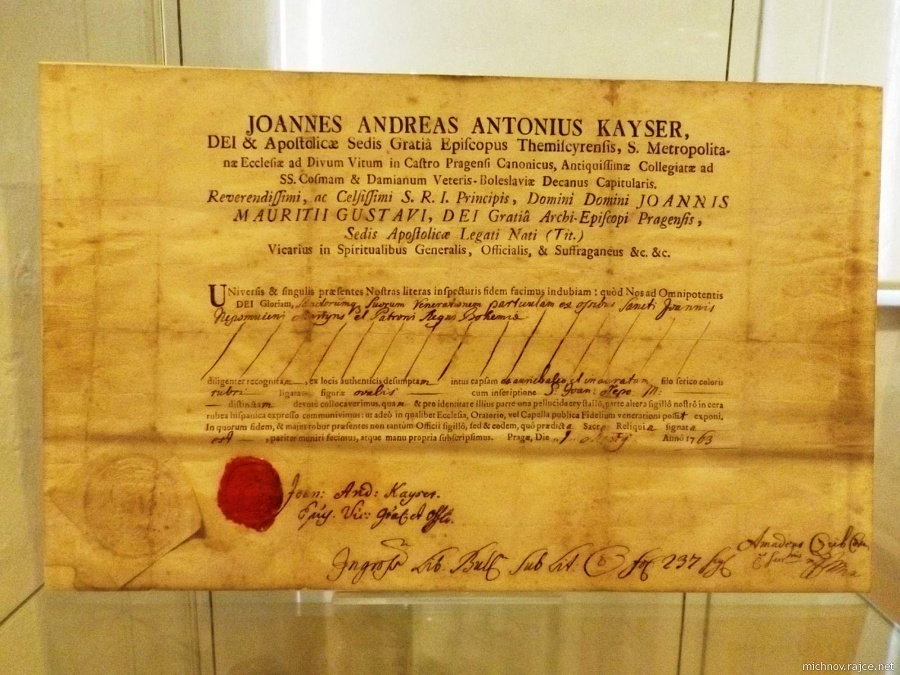 JOANNES ANDREAS ANTONIUS KAYSER,
DEI & Apoſtolicæ Sedis Gratiâ Epiſcopus Themiſcyrenſis, S. Metropolita-
næ Eccleſiæ ad Divum Vitum in Caſtro Pragenſi Canonicus, Antiquiſſimæ Collegiatæ ad
SS. Coſmam & Damianum Veteris-Boleslaviæ Decanus Capitularis.
Reverendiſſimi, ac Celſiſſimi S. R. I. Principis, Domini Domini JOANNIS
MAURITII GUSTAVI, DEI Gratiâ Archi-Epiſcopi Pragenſis,
Sedis Apoſtolicæ Legati Nati (Tit.)
Vicarius in Spiritualibus Generalis, Officialis, & Suffraganeus &c. &c.
Univerſis & ſingulis præſentes Noſtras literas inſpecturis fidem facimus indubiam: quòd Nos ad Omnipotentis
DEI Gloriam, Sanctorumq Suorum Venerationem particulam ex oſsibus Sancti Joannis
Nepomuceni Martyris et Patroni Regni Bohemiæ
diligenter recognitam, ex locis authenticis deſumptam intus capſam ex aurichalco filo ſerico coloris
rubri ligatam figuræ ovalis cum inſcriptione S. Joan: Nepo. M.
diſtinctam devotè collocaverimus, quam & pro identitate illius parte una pellucidè cryſtallô, parte altera ſigillô noſtrô in cera
rubea hiſpanica expreſſo communivimus: ut adeò in qualibet Eccleſia, Oratorio, vel Capella publica Fidelium venerationi poſſit exponi.
In quorum fidem, & majus robur præſentes non tantùm Officii ſigillô, ſed & eodem, quô prædicta Sacra Reliquia ſignata
eſt, pariter muniri fecimus, atque manu propria ſubſcripſimus. Pragæ, Die Annô 1763
Joan: And: Kayser.
Epus. Vic: Gralis et Offlis.
Ingroſs Lib. Bull Sub Lit. fol 237
Amadeus
michnov.rajce.net